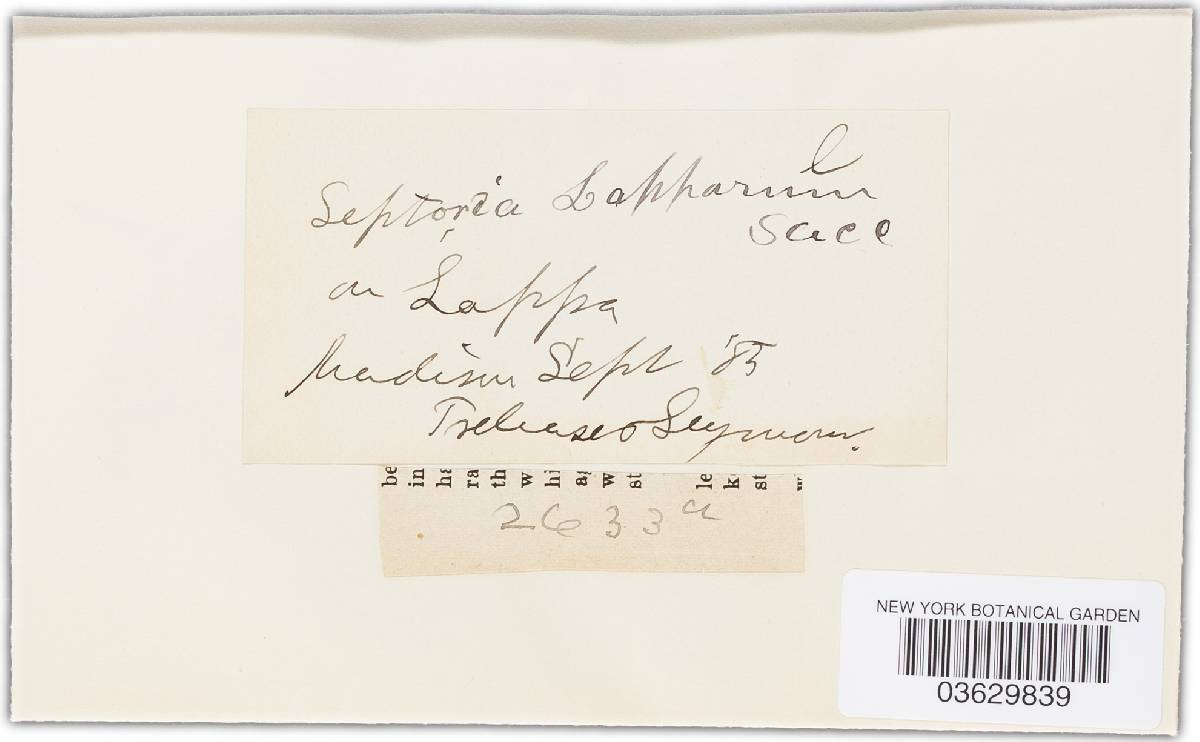 l
Septoria Lapparum
Sacc
on Lappa
Madison Sept '85
Trelease & Seymour.
be
in
ha
ra
th
w
hi
ag
w
st
le
k
st
2633a
NEW YORK BOTANICAL GARDEN
03629839